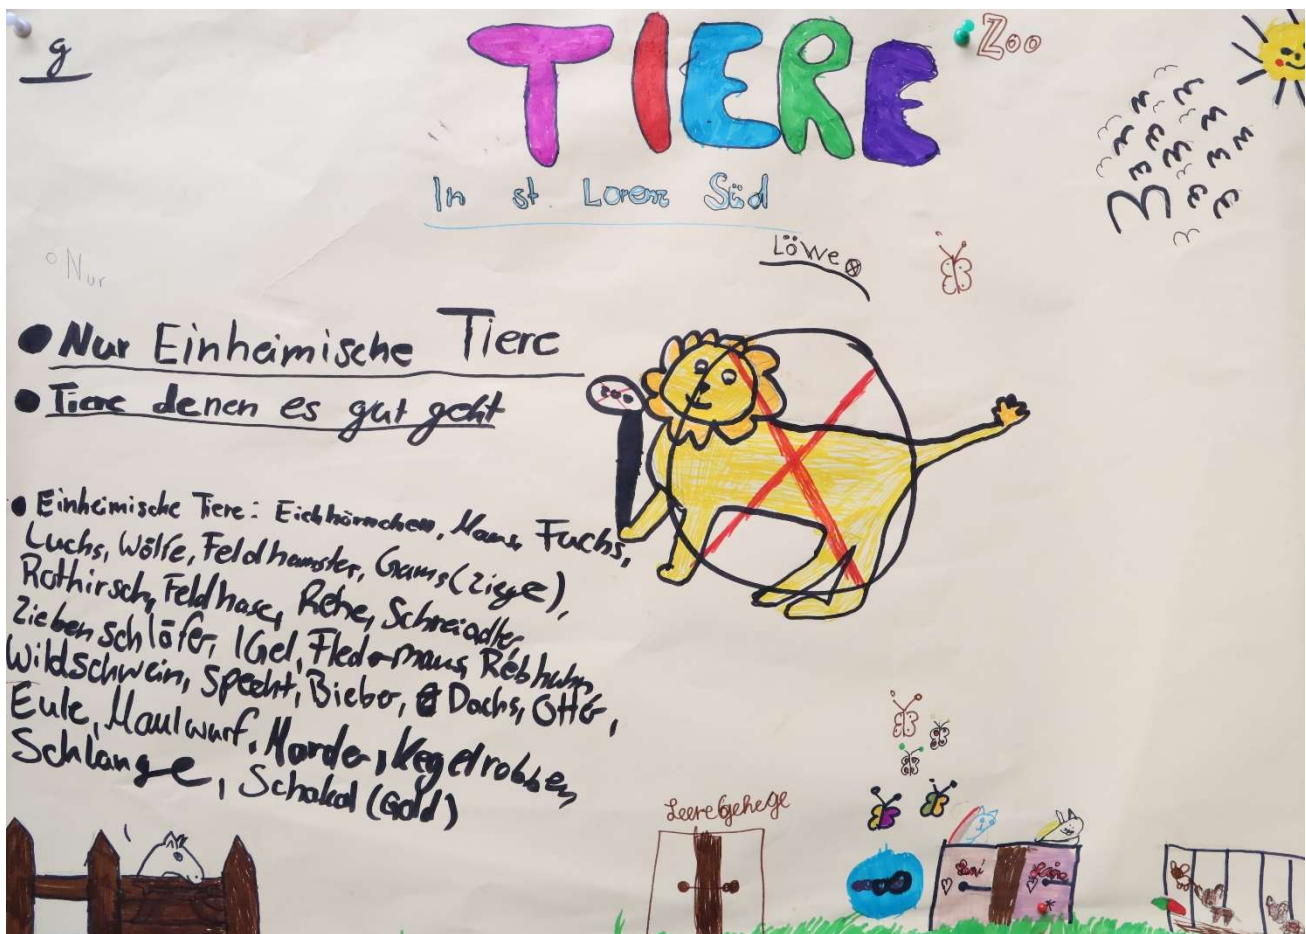 g
TIERE
Zoo
In st. Lorenz Süd
Löwe
Nur
Nur Einheimische Tiere
Tiere denen es gut geht
zoo
Einheimische Tiere: Eichhörnchen, Maus, Fuchs,
Luchs, Wölfe, Feldhamster, Gams (Ziege),
Rothirsch, Feldhase, Rehe, Schreiadler,
Ziebenschläfer, IGel, Fledermaus, Rebhuhn,
Wildschwein, Specht, Bieber, Dachs, Otter,
Eule, Maulwurf, Marder, Kegelrobben,
Schlange, Schakal (Gold)
Leere Gehege